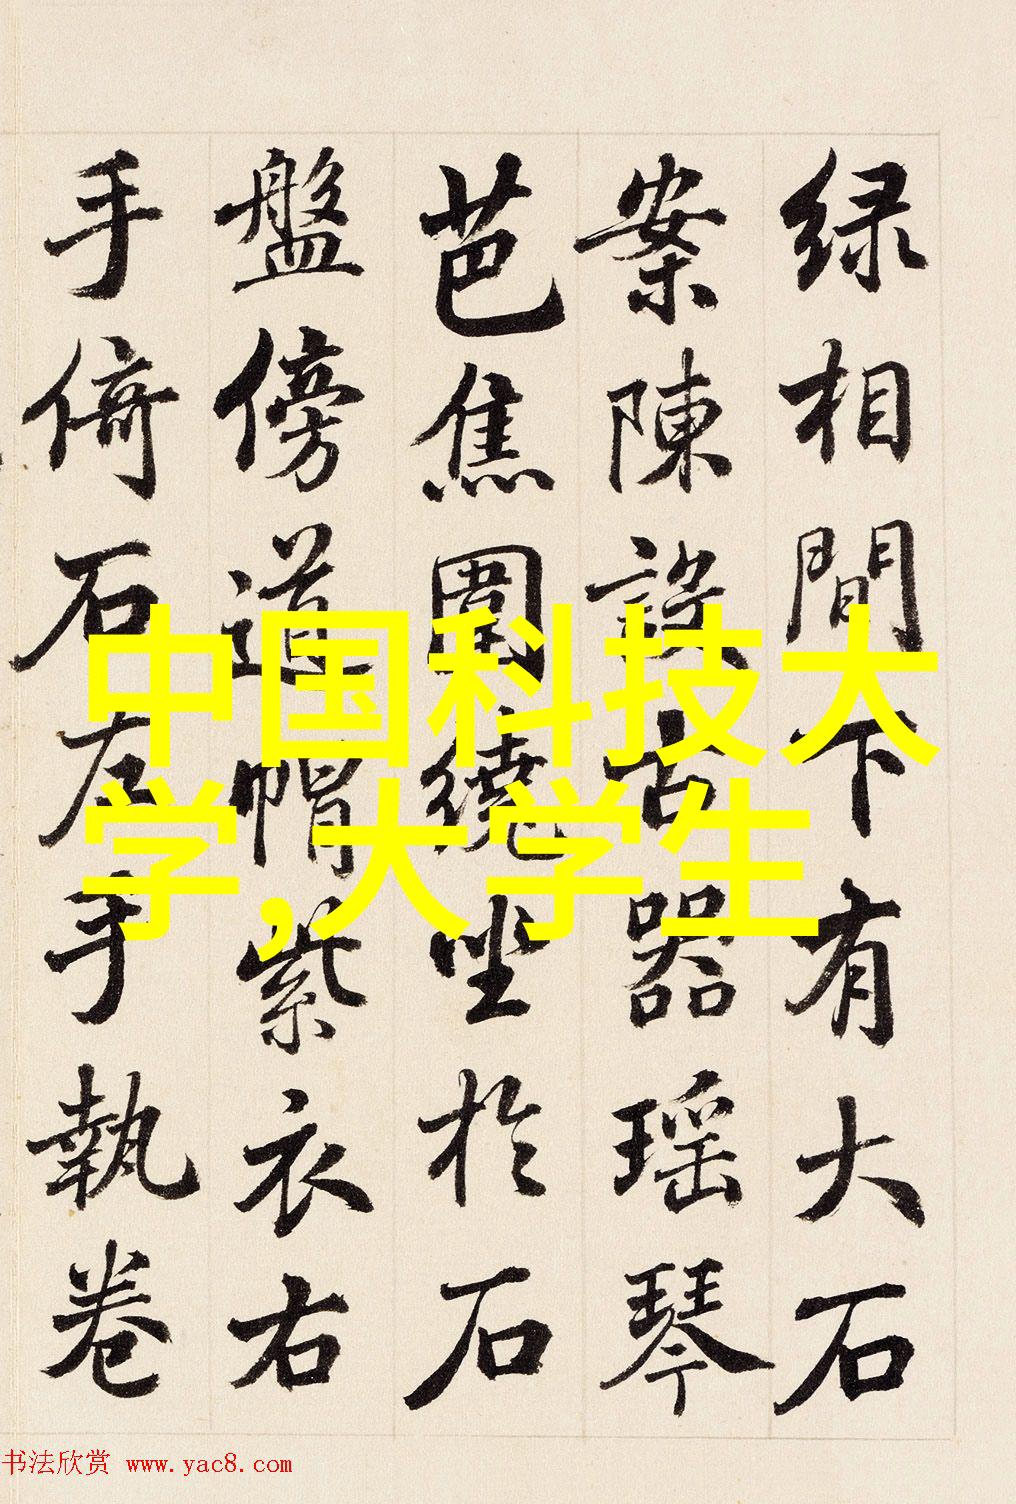 绿相間下有大石
案陳設古器瑶琴
芭焦圍繞坐於石
盤傍道帽紫衣右
手倚石左手執卷
中国科技大
学,大学生
书法欣赏 www.yac8.com